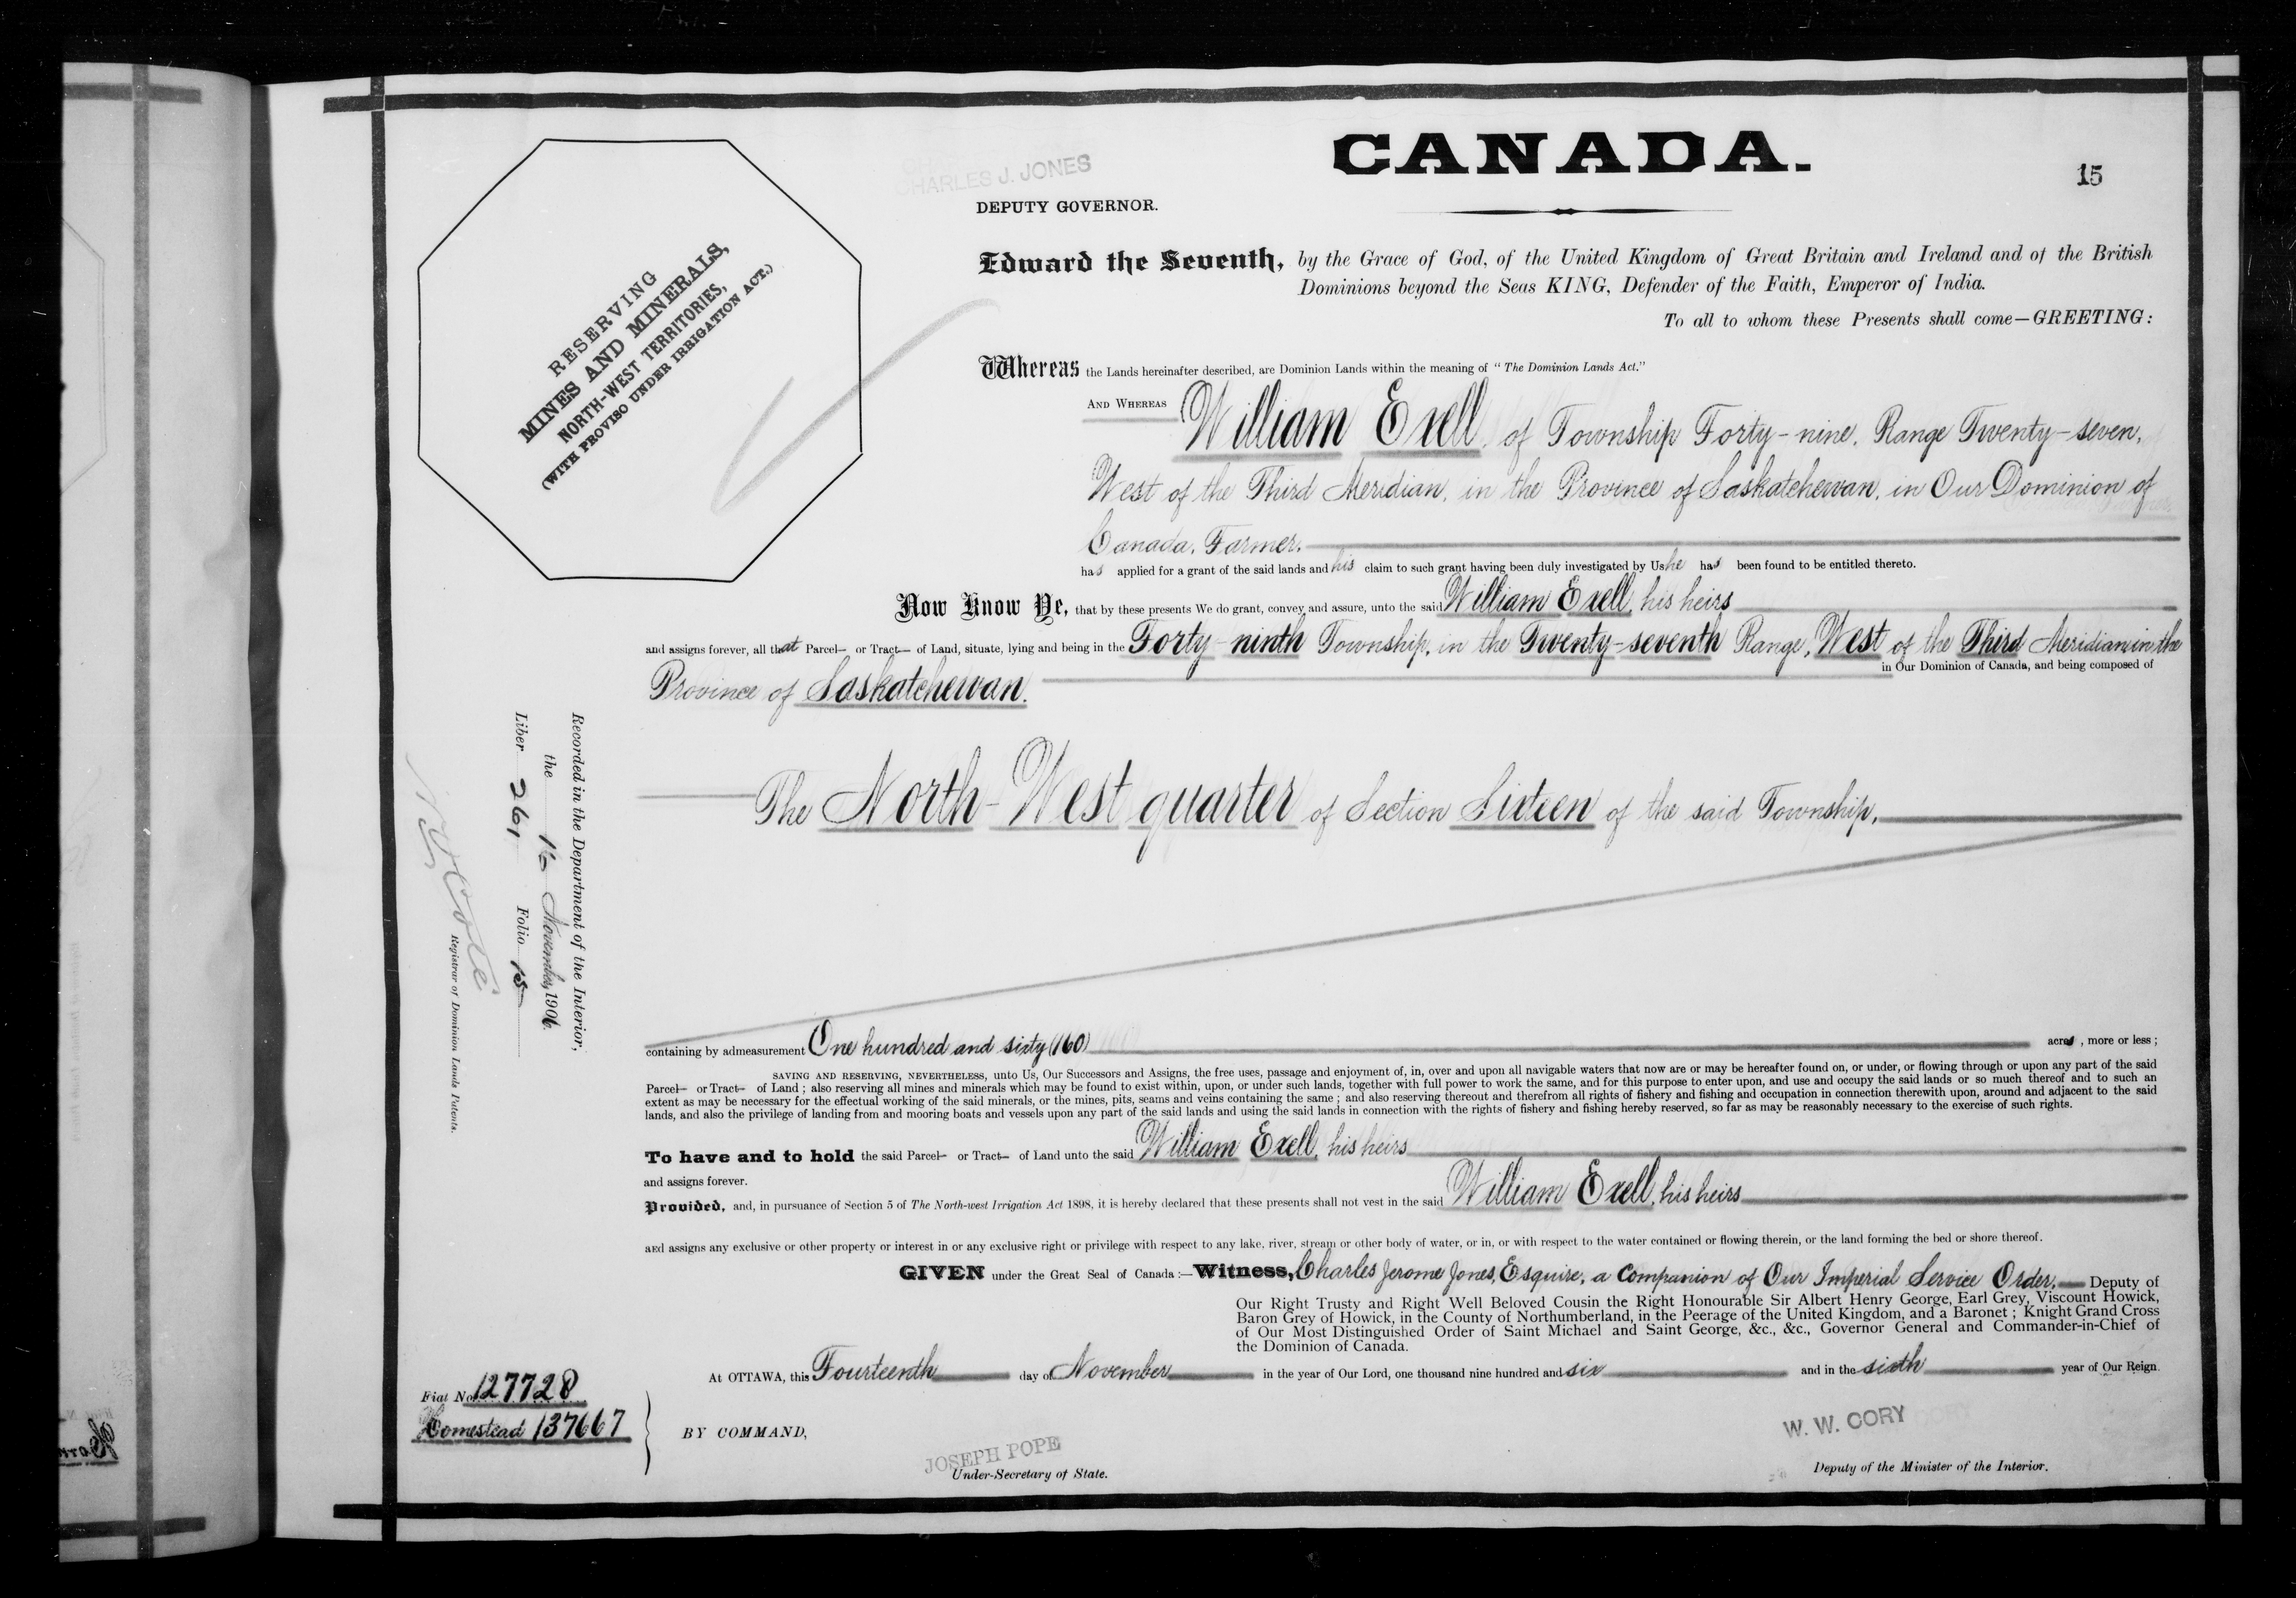 CANADA.
15
CHARLES J. JONES
DEPUTY GOVERNOR.
RESERVING
MINES AND MINERALS,
NORTH-WEST TERRITORIES,
(WITH PROVISO UNDER IRRIGATION ACT.)
Edward the Seventh, by the Grace of God, of the United Kingdom of Great Britain and Ireland and of the British
Dominions beyond the Seas KING, Defender of the Faith, Emperor of India.
To all to whom these Presents shall come—GREETING:
Whereas the Lands hereinafter described, are Dominion Lands within the meaning of "The Dominion Lands Act."
AND WHEREAS William Exell, of Township Forty-nine, Range Twenty-seven,
West of the Third Meridian, in the Province of Saskatchewan, in Our Dominion of
Canada, Farmer.
has applied for a grant of the said lands and his claim to such grant having been duly investigated by Us he has been found to be entitled thereto.
Now Know Ye, that by these presents We do grant, convey and assure, unto the said William Exell, his heirs
and assigns forever, all that Parcel— or Tract— of Land, situate, lying and being in the Forty-ninth Township, in the Twenty-seventh Range, West of the Third Meridian in the
in Our Dominion of Canada, and being composed of
Province of Saskatchewan.
The North-West quarter of Section Sixteen of the said Township,
Recorded in the Department of the Interior,
the 16 November, 1906.
Liber 261 Folio 15
N O Coté
Registrar of Dominion Lands Patents.
containing by admeasurement One hundred and sixty (160) acres, more or less;
SAVING AND RESERVING, NEVERTHELESS, unto Us, Our Successors and Assigns, the free uses, passage and enjoyment of, in, over and upon all navigable waters that now are or may be hereafter found on, or under, or flowing through or upon any part of the said
Parcel— or Tract— of Land; also reserving all mines and minerals which may be found to exist within, upon, or under such lands, together with full power to work the same, and for this purpose to enter upon, and use and occupy the said lands or so much thereof and to such an
extent as may be necessary for the effectual working of the said minerals, or the mines, pits, seams and veins containing the same; and also reserving thereout and therefrom all rights of fishery and fishing and occupation in connection therewith upon, around and adjacent to the said
lands, and also the privilege of landing from and mooring boats and vessels upon any part of the said lands and using the said lands in connection with the rights of fishery and fishing hereby reserved, so far as may be reasonably necessary to the exercise of such rights.
To have and to hold the said Parcel— or Tract— of Land unto the said William Exell, his heirs
and assigns forever.
Provided, and, in pursuance of Section 5 of The North-west Irrigation Act 1898, it is hereby declared that these presents shall not vest in the said William Exell, his heirs
and assigns any exclusive or other property or interest in or any exclusive right or privilege with respect to any lake, river, stream or other body of water, or in, or with respect to the water contained or flowing therein, or the land forming the bed or shore thereof.
GIVEN under the Great Seal of Canada:—Witness, Charles Jerome Jones, Esquire, a Companion of Our Imperial Service Order, Deputy of
Our Right Trusty and Right Well Beloved Cousin the Right Honourable Sir Albert Henry George, Earl Grey, Viscount Howick,
Baron Grey of Howick, in the County of Northumberland, in the Peerage of the United Kingdom, and a Baronet; Knight Grand Cross
of Our Most Distinguished Order of Saint Michael and Saint George, &c., &c., Governor General and Commander-in-Chief of
the Dominion of Canada.
At OTTAWA, this Fourteenth day of November in the year of Our Lord, one thousand nine hundred and six and in the sixth year of Our Reign.
Fiat No. 127728
Homestead 137667
BY COMMAND,
JOSEPH POPE
Under-Secretary of State.
W. W. CORY
Deputy of the Minister of the Interior.